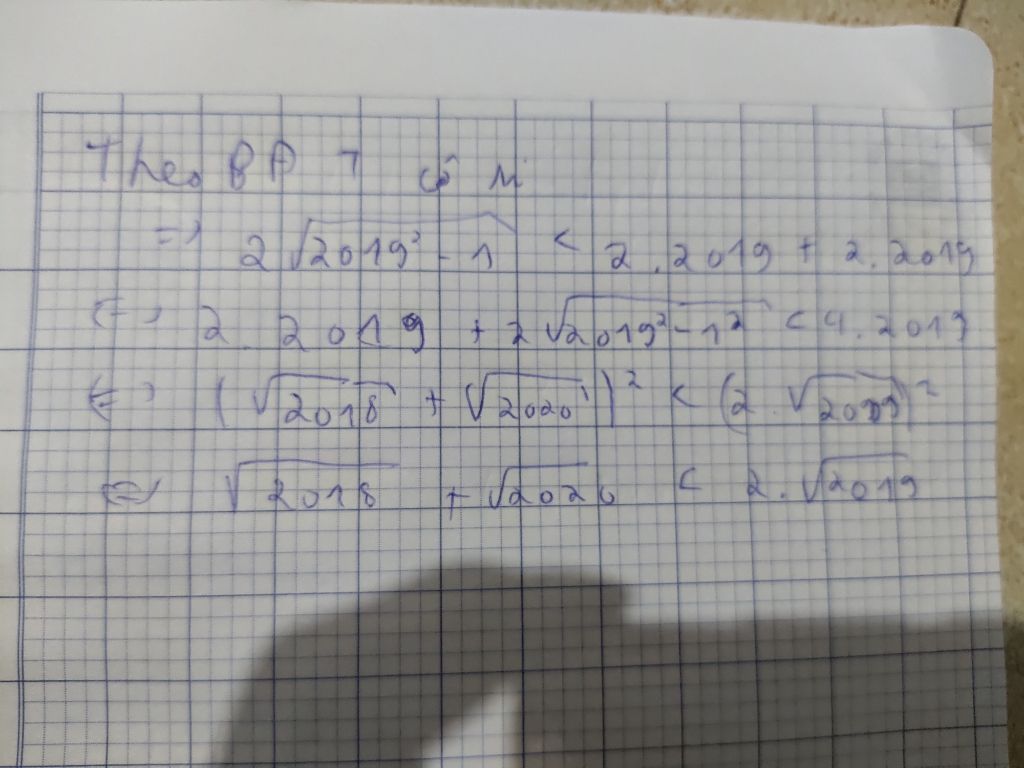 Theo BĐT cô si
=> 2√(2019² - 1) < 2.2019 + 2.2019
<=> 2.2019 + 2√(2019² - 1²) < 4.2019
<=> (√2018 + √2020)² < (2.√2019)²
<=> √2018 + √2020 < 2.√2019